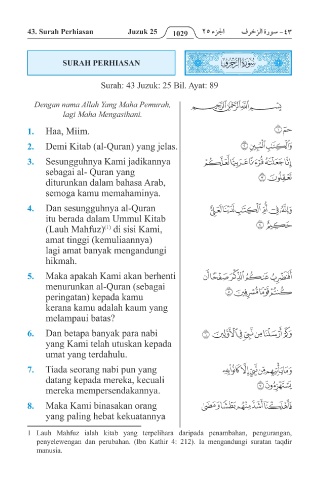 43. Surah Perhiasan Juzuk 25 1029 الجزء ٢٥ ٤٣ - سورة الزخرف
SURAH PERHIASAN سُورَةُ الزُّخْرُفِ
Surah: 43 Juzuk: 25 Bil. Ayat: 89
Dengan nama Allah Yang Maha Pemurah,
lagi Maha Mengasihani.
بِسْمِ اللَّهِ الرَّحْمَٰنِ الرَّحِيمِ
1. Haa, Miim.
حمٓ ١
2. Demi Kitab (al-Quran) yang jelas.
وَالْكِتَٰبِ الْمُبِينِ ٢
3. Sesungguhnya Kami jadikannya
sebagai al- Quran yang
diturunkan dalam bahasa Arab,
semoga kamu memahaminya.
إِنَّا جَعَلْنَٰهُ قُرْءَٰنًا عَرَبِيًّا لَّعَلَّكُمْ
تَعْقِلُونَ ٣
4. Dan sesungguhnya al-Quran
itu berada dalam Ummul Kitab
(Lauh Mahfuz)(1) di sisi Kami,
amat tinggi (kemuliaannya)
lagi amat banyak mengandungi
hikmah.
وَإِنَّهُ فِىٓ أُمِّ الْكِتَٰبِ لَدَيْنَا لَعَلِىٌّ
حَكِيمٌ ٤
5. Maka apakah Kami akan berhenti
menurunkan al-Quran (sebagai
peringatan) kepada kamu
kerana kamu adalah kaum yang
melampaui batas?
أَفَنَضْرِبُ عَنكُمُ الذِّكْرَ صَفْحًا أَن
كُنتُمْ قَوْمًا مُّسْرِفِينَ ٥
6. Dan betapa banyak para nabi
yang Kami telah utuskan kepada
umat yang terdahulu.
وَكَمْ أَرْسَلْنَا مِن نَّبِىٍّ فِى الْأَوَّلِينَ ٦
7. Tiada seorang nabi pun yang
datang kepada mereka, kecuali
mereka mempersendakannya.
وَمَا يَأْتِيهِم مِّن نَّبِىٍّ إِلَّا كَانُوا۟ بِهِ
يَسْتَهْزِءُونَ ٧
8. Maka Kami binasakan orang
yang paling hebat kekuatannya
فَأَهْلَكْنَآ أَشَدَّ مِنْهُم بَطْشًا وَمَضَىٰ
1 Lauh Mahfuz ialah kitab yang terpelihara daripada penambahan, pengurangan,
penyelewengan dan perubahan. (Ibn Kathir 4: 212). Ia mengandungi suratan taqdir
manusia.